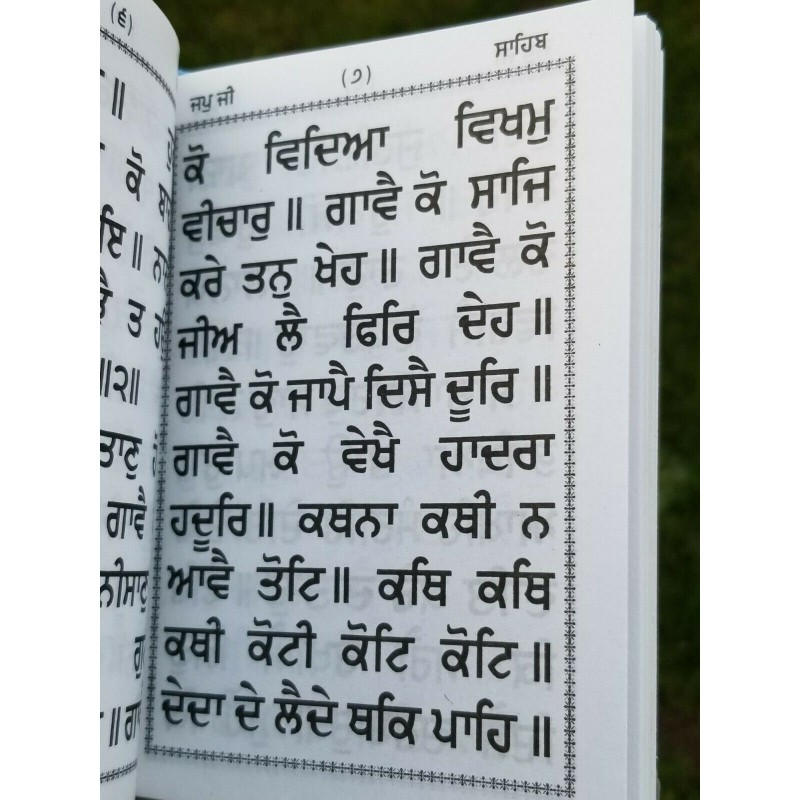 (੬)
ਕੋ
ਤ
॥੨॥
ਗਾਵੈ
ਜਪੁ ਜੀ (੭) ਸਾਹਿਬ
ਕੋ ਵਿਦਿਆ ਵਿਖਮੁ
ਵੀਚਾਰੁ ॥ ਗਾਵੈ ਕੋ ਸਾਜਿ
ਕਰੇ ਤਨੁ ਖੇਹ ॥ ਗਾਵੈ ਕੋ
ਜੀਅ ਲੈ ਫਿਰਿ ਦੇਹ ॥
ਗਾਵੈ ਕੋ ਜਾਪੈ ਦਿਸੈ ਦੂਰਿ ॥
ਗਾਵੈ ਕੋ ਵੇਖੈ ਹਾਦਰਾ
ਹਦੂਰਿ ॥ ਕਥਨਾ ਕਥੀ ਨ
ਆਵੈ ਤੋਟਿ ॥ ਕਥਿ ਕਥਿ
ਕਥੀ ਕੋਟੀ ਕੋਟਿ ਕੋਟਿ ॥
ਦੇਦਾ ਦੇ ਲੈਦੇ ਥਕਿ ਪਾਹਿ ॥